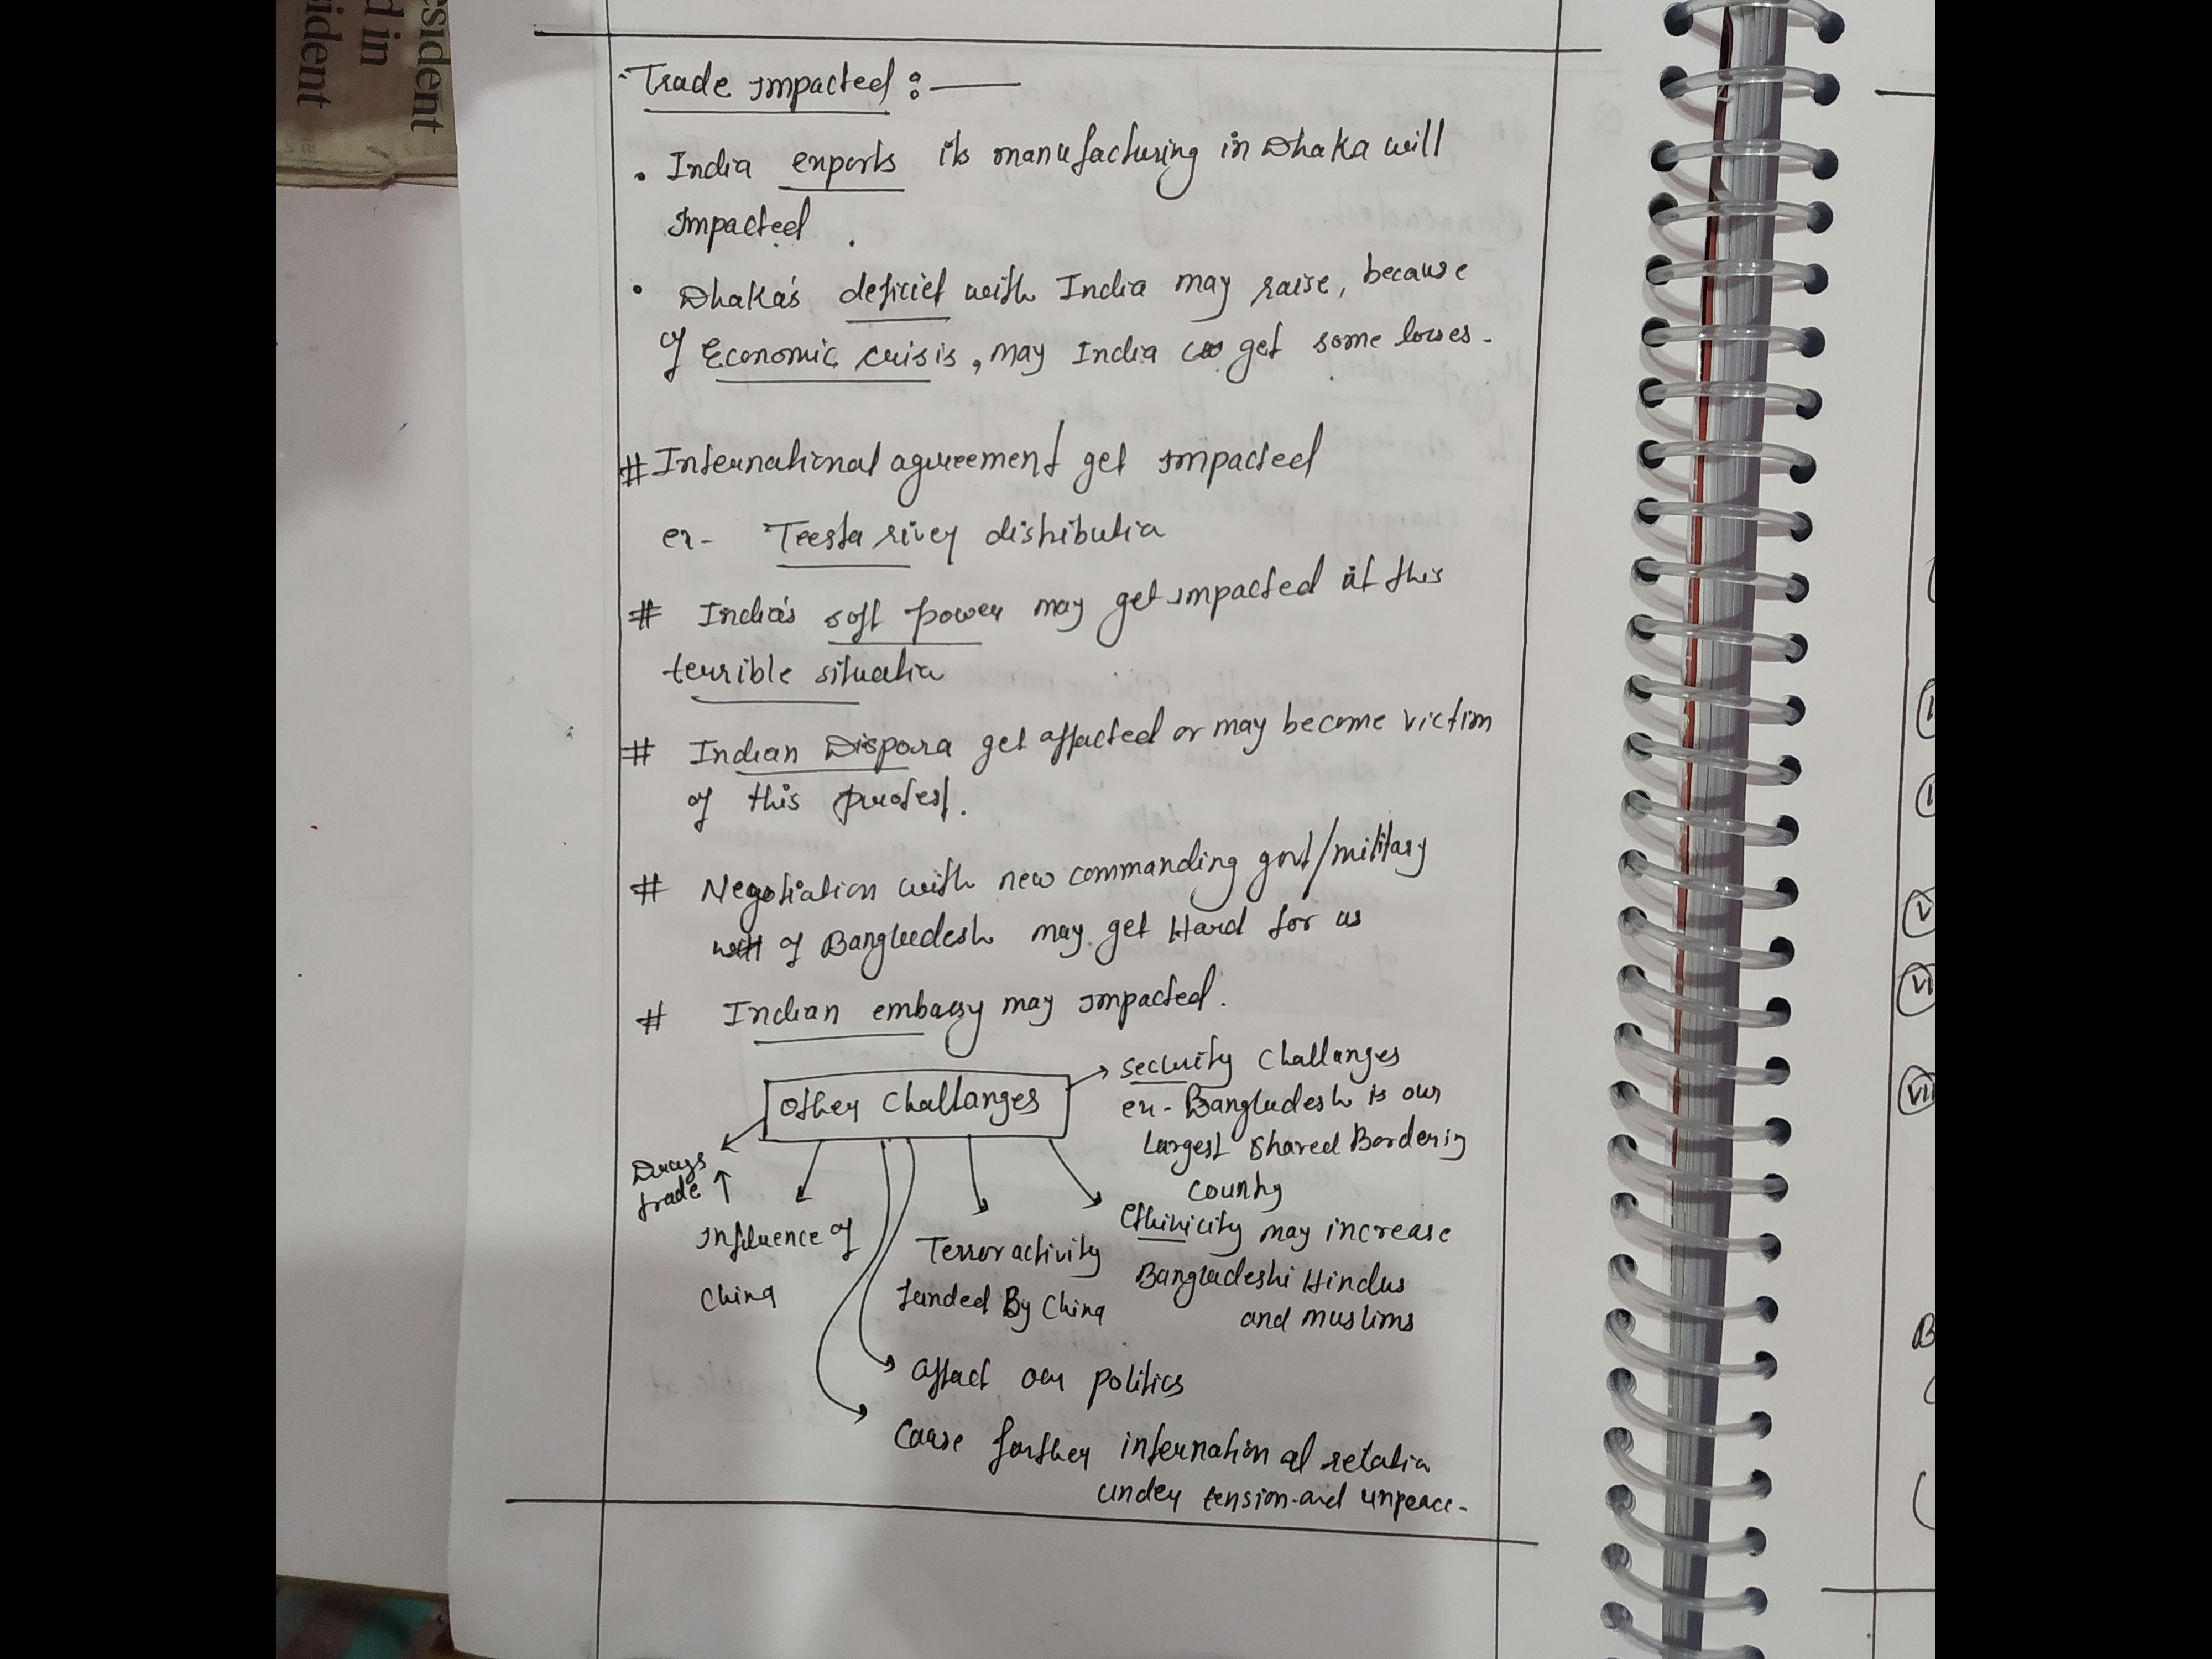 esident
d in
sident
Trade Impacted :—
• India exports its manufacturing in Dhaka will
Impacted .
• Dhaka's deficiet with India may raise, because
of Economic crisis, may India get some losses.
# International agreement get impacted
ex- Teesta river distributia
# India's soft power may get impacted at this
terrible situatia
# Indian Dispora get affacted or may become victim
of this protest.
# Negotiation with new commanding govt/military
of Bangladesh may get Hard for us
# Indian embassy may impacted.
Other Challanges
Security Challanges
ex- Bangladesh is our
Largest Shared Bordering
Country
Drugs
trade ↑
Influence of
China
Terror activity
funded By China
Ethinicity may increase
Bangladeshi Hindus
and muslims
Affact our politics
Cause further internation al relatia
under tension and unpeace.
I
V
VI
VII
B